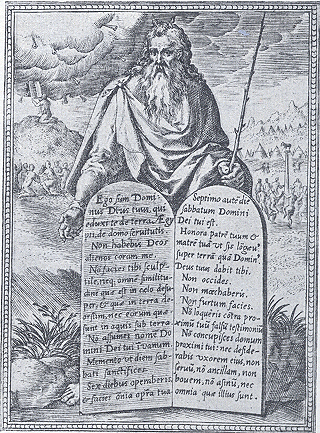 Ego sum Domi-
nus Deus tuus, qui
eduxi te de terra Egy
pti, de domo servitutis.
Non habebis Deos
alienos coram me.
Nō facies tibi sculp-
tile, neq, omnē similitu-
dinē quæ est in celo desu-
per, & quæ in terra de-
orsum, nec eorum quæ
sunt in aquis sub terra.
Nō assumes nomē Do
mini Dei tui ī vanum.
Memento vt diem sab-
bati sanctifices.
Sex diebus operaberis,
& facies ōnia opra tua.
Septimo autē die
sabbatum Domini
Dei tui est.
Honora patrē tuum &
matrē tuā vt sis lōgevꝰ
super terrā quā Dominꝰ
Deus tuus dabit tibi.
Non occides.
Non mœchaberis.
Non furtum facies.
Nō loqueris cōtra pro-
ximū tuū falsū testimoniū
Nō concupisces domum
proximi tui: nec deside-
rabis vxorem eius, non
seruū, nō ancillam, non
bouem, nō asinū, nec
omnia quæ illius sunt.